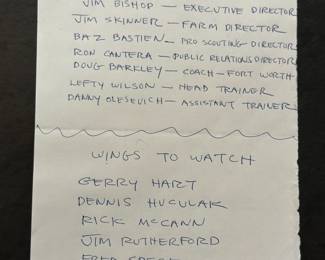 JIM BISHOP — EXECUTIVE DIRECTOR
JIM SKINNER — FARM DIRECTOR
BAZ BASTIEN — PRO SCOUTING DIRECTOR
RON CANTERA — PUBLIC RELATIONS DIRECTOR
DOUG BARKLEY — COACH — FORT WORTH
LEFTY WILSON — HEAD TRAINER
DANNY OLESEVICH — ASSISTANT TRAINER
WINGS TO WATCH
GERRY HART
DENNIS HUCULAK
RICK McCANN
JIM RUTHERFORD